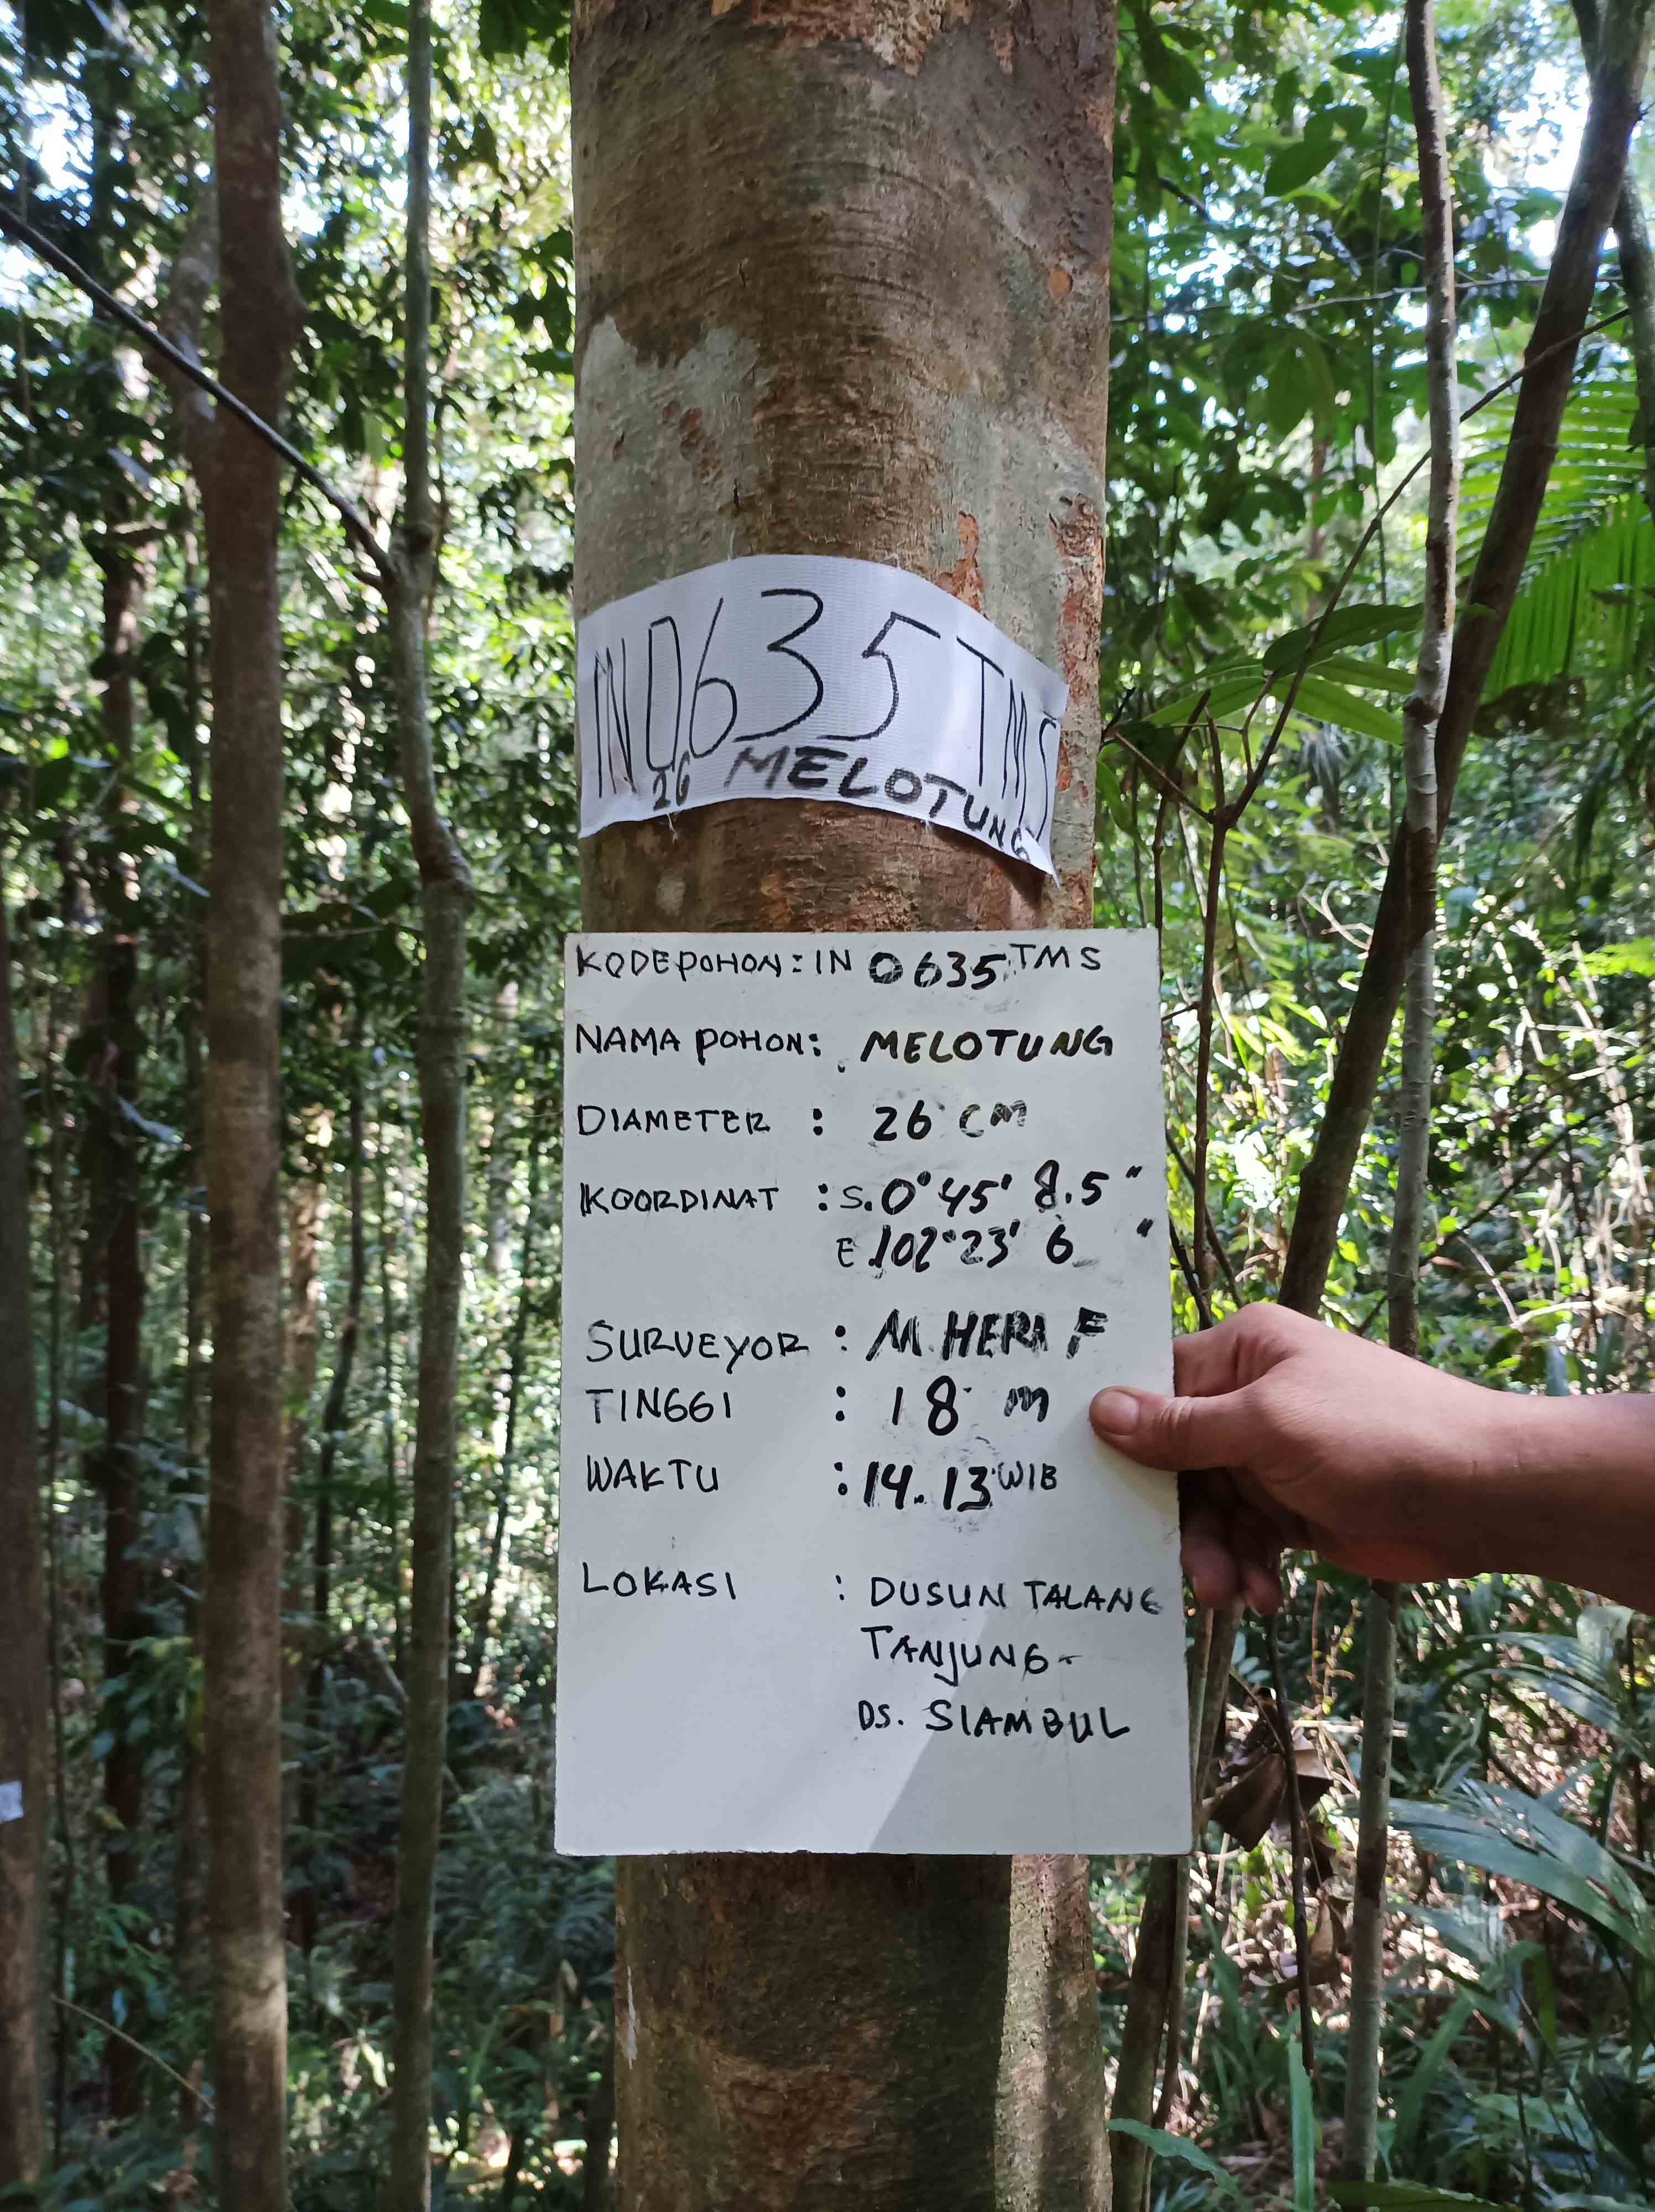 IN0635 TMS
26 MELOTUNG
KODE POHON : IN 0635 TMS
NAMA POHON : MELOTUNG
DIAMETER : 26 CM
KOORDINAT : S. 0° 45' 8.5"
E 102° 23' 6 "
SURVEYOR : M. HERI F
TINGGI : 18 m
WAKTU : 14.13 WIB
LOKASI : DUSUN TALANG
TANJUNG -
DS. SIAMBUL